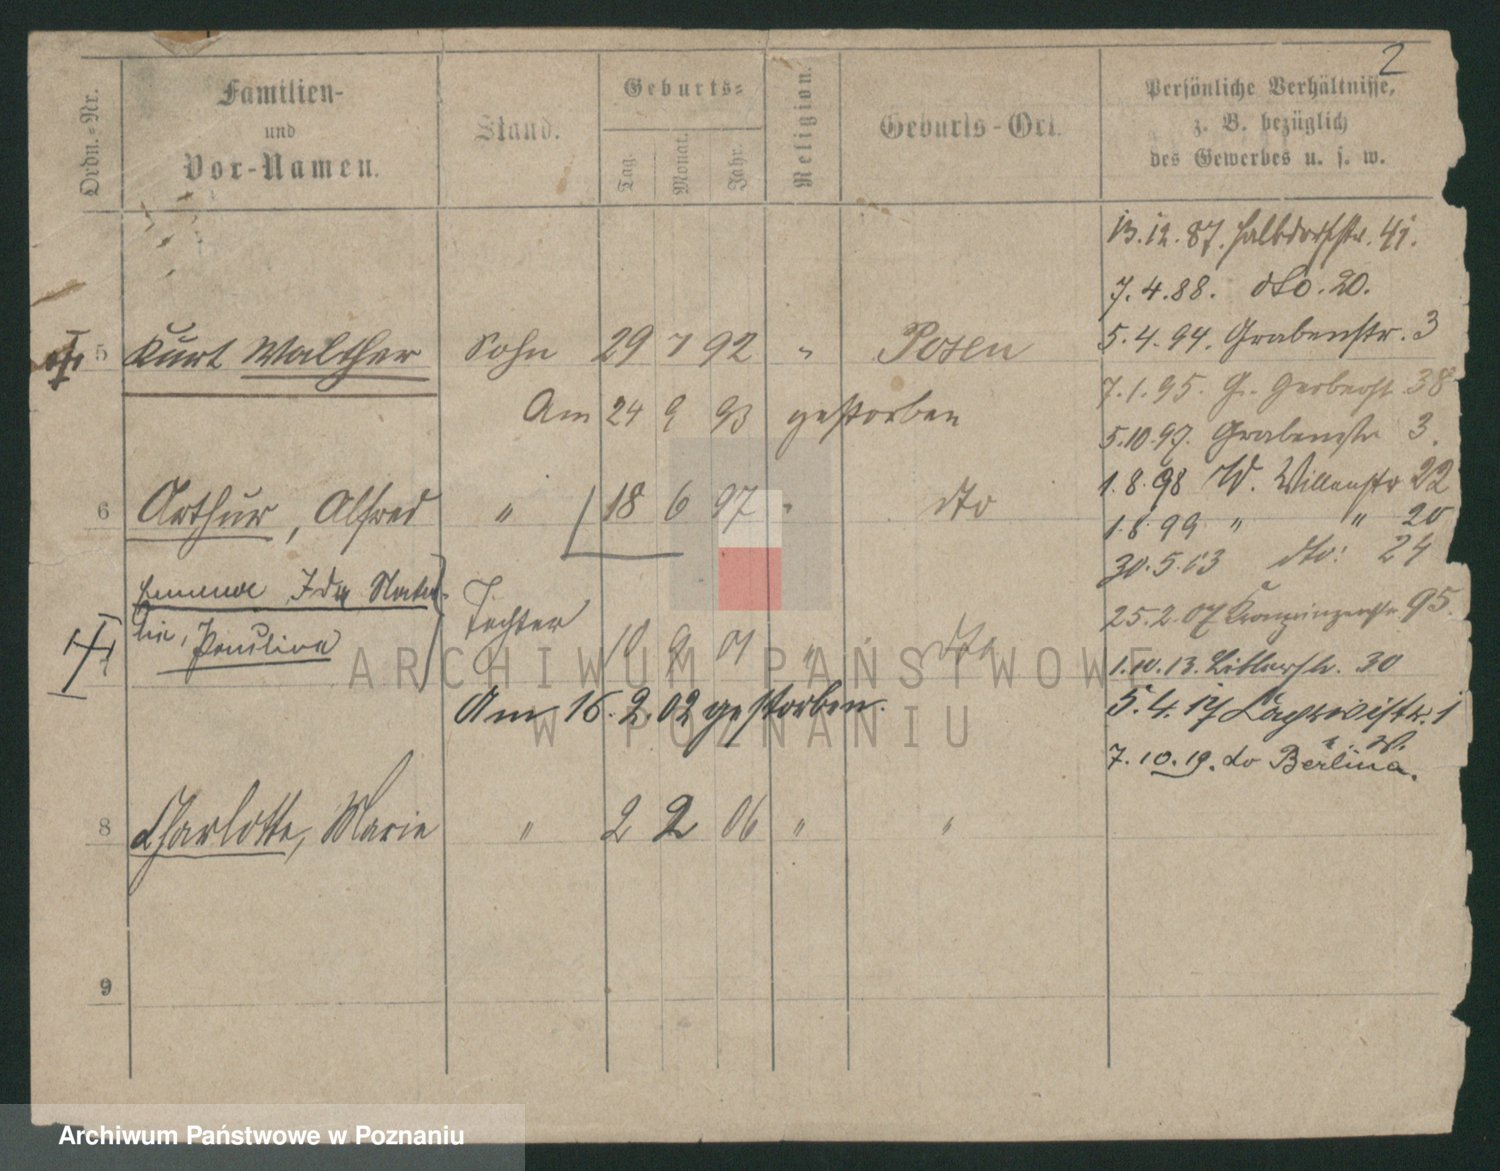 2
Ordn.-Nr.
Familien-
und
Vor-Namen.
Stand.
Geburts-
Tag.
Monat.
Jahr.
Religion.
Geburts-Ort.
Persönliche Verhältnisse,
z. B. bezüglich
des Gewerbes u. s. w.
13.12.87. Halbdorfstr. 41.
7.4.88. dto. 20.
5.4.94. Grabenstr. 3
5 Kurt Walther Sohn 29 7 92 " Posen
7.1.95. G. Gerberstr 38
Am 24 9 93 gestorben
5.10.97. Grabenstr 3.
1.8.98 W. Willenstr 22
6 Arthur, Alfred " 18 6 97 " dto
1.8.99 " " 20
30.5.03 dto: 24
Ida Nata-
lie, Paulina Tochter 10 9 01 " dto
25.2.07 Kronprinzenstr 95.
1.10.13. 30
Am 16.2.02 gestorben.
5.4.17 1
7.10.19. do Berlin
8 Charlotte, Marie " 2 2 06 " "
9
ARCHIWUM PAŃSTWOWE
W POZNANIU
Archiwum Państwowe w Poznaniu